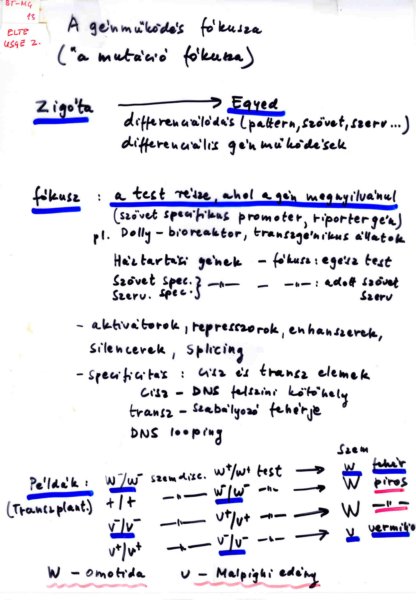 BT-MG
15
ELTE
USGE 2.
A génműködés fókusza
("a mutáció fókusza)
Zigóta → Egyed
differenciálódás (pattern, szövet, szerv...)
differenciális génműködések
fókusz : a test része, ahol a gén megnyilvánul
(szövet specifikus promoter, riportergén)
pl. Dolly - bioreaktor, transzgénikus állatok
Háztartási gének - fókusz: egész test
Szövet spec. } -"- - -"- : adott szövet
Szerv. spec. } szerv
- aktivátorok, represszorok, enhanszerek,
silencerek, splicing
- specificitás : cisz és transz elemek
cisz - DNS felszíni kötőhely
transz - szabályozó fehérje
DNS looping
szem
Példák : w⁻/w⁻ szemdisc. w⁺/w⁺ test → w fehér
(Transzplant.) +/+ -"- w⁻/w⁻ -"- → W piros
v⁻/v⁻ -"- v⁺/v⁺ -"- → W -"-
v⁺/v⁺ -"- v⁻/v⁻ -"- → v vermilio
W - omatida v - Malpighi edény